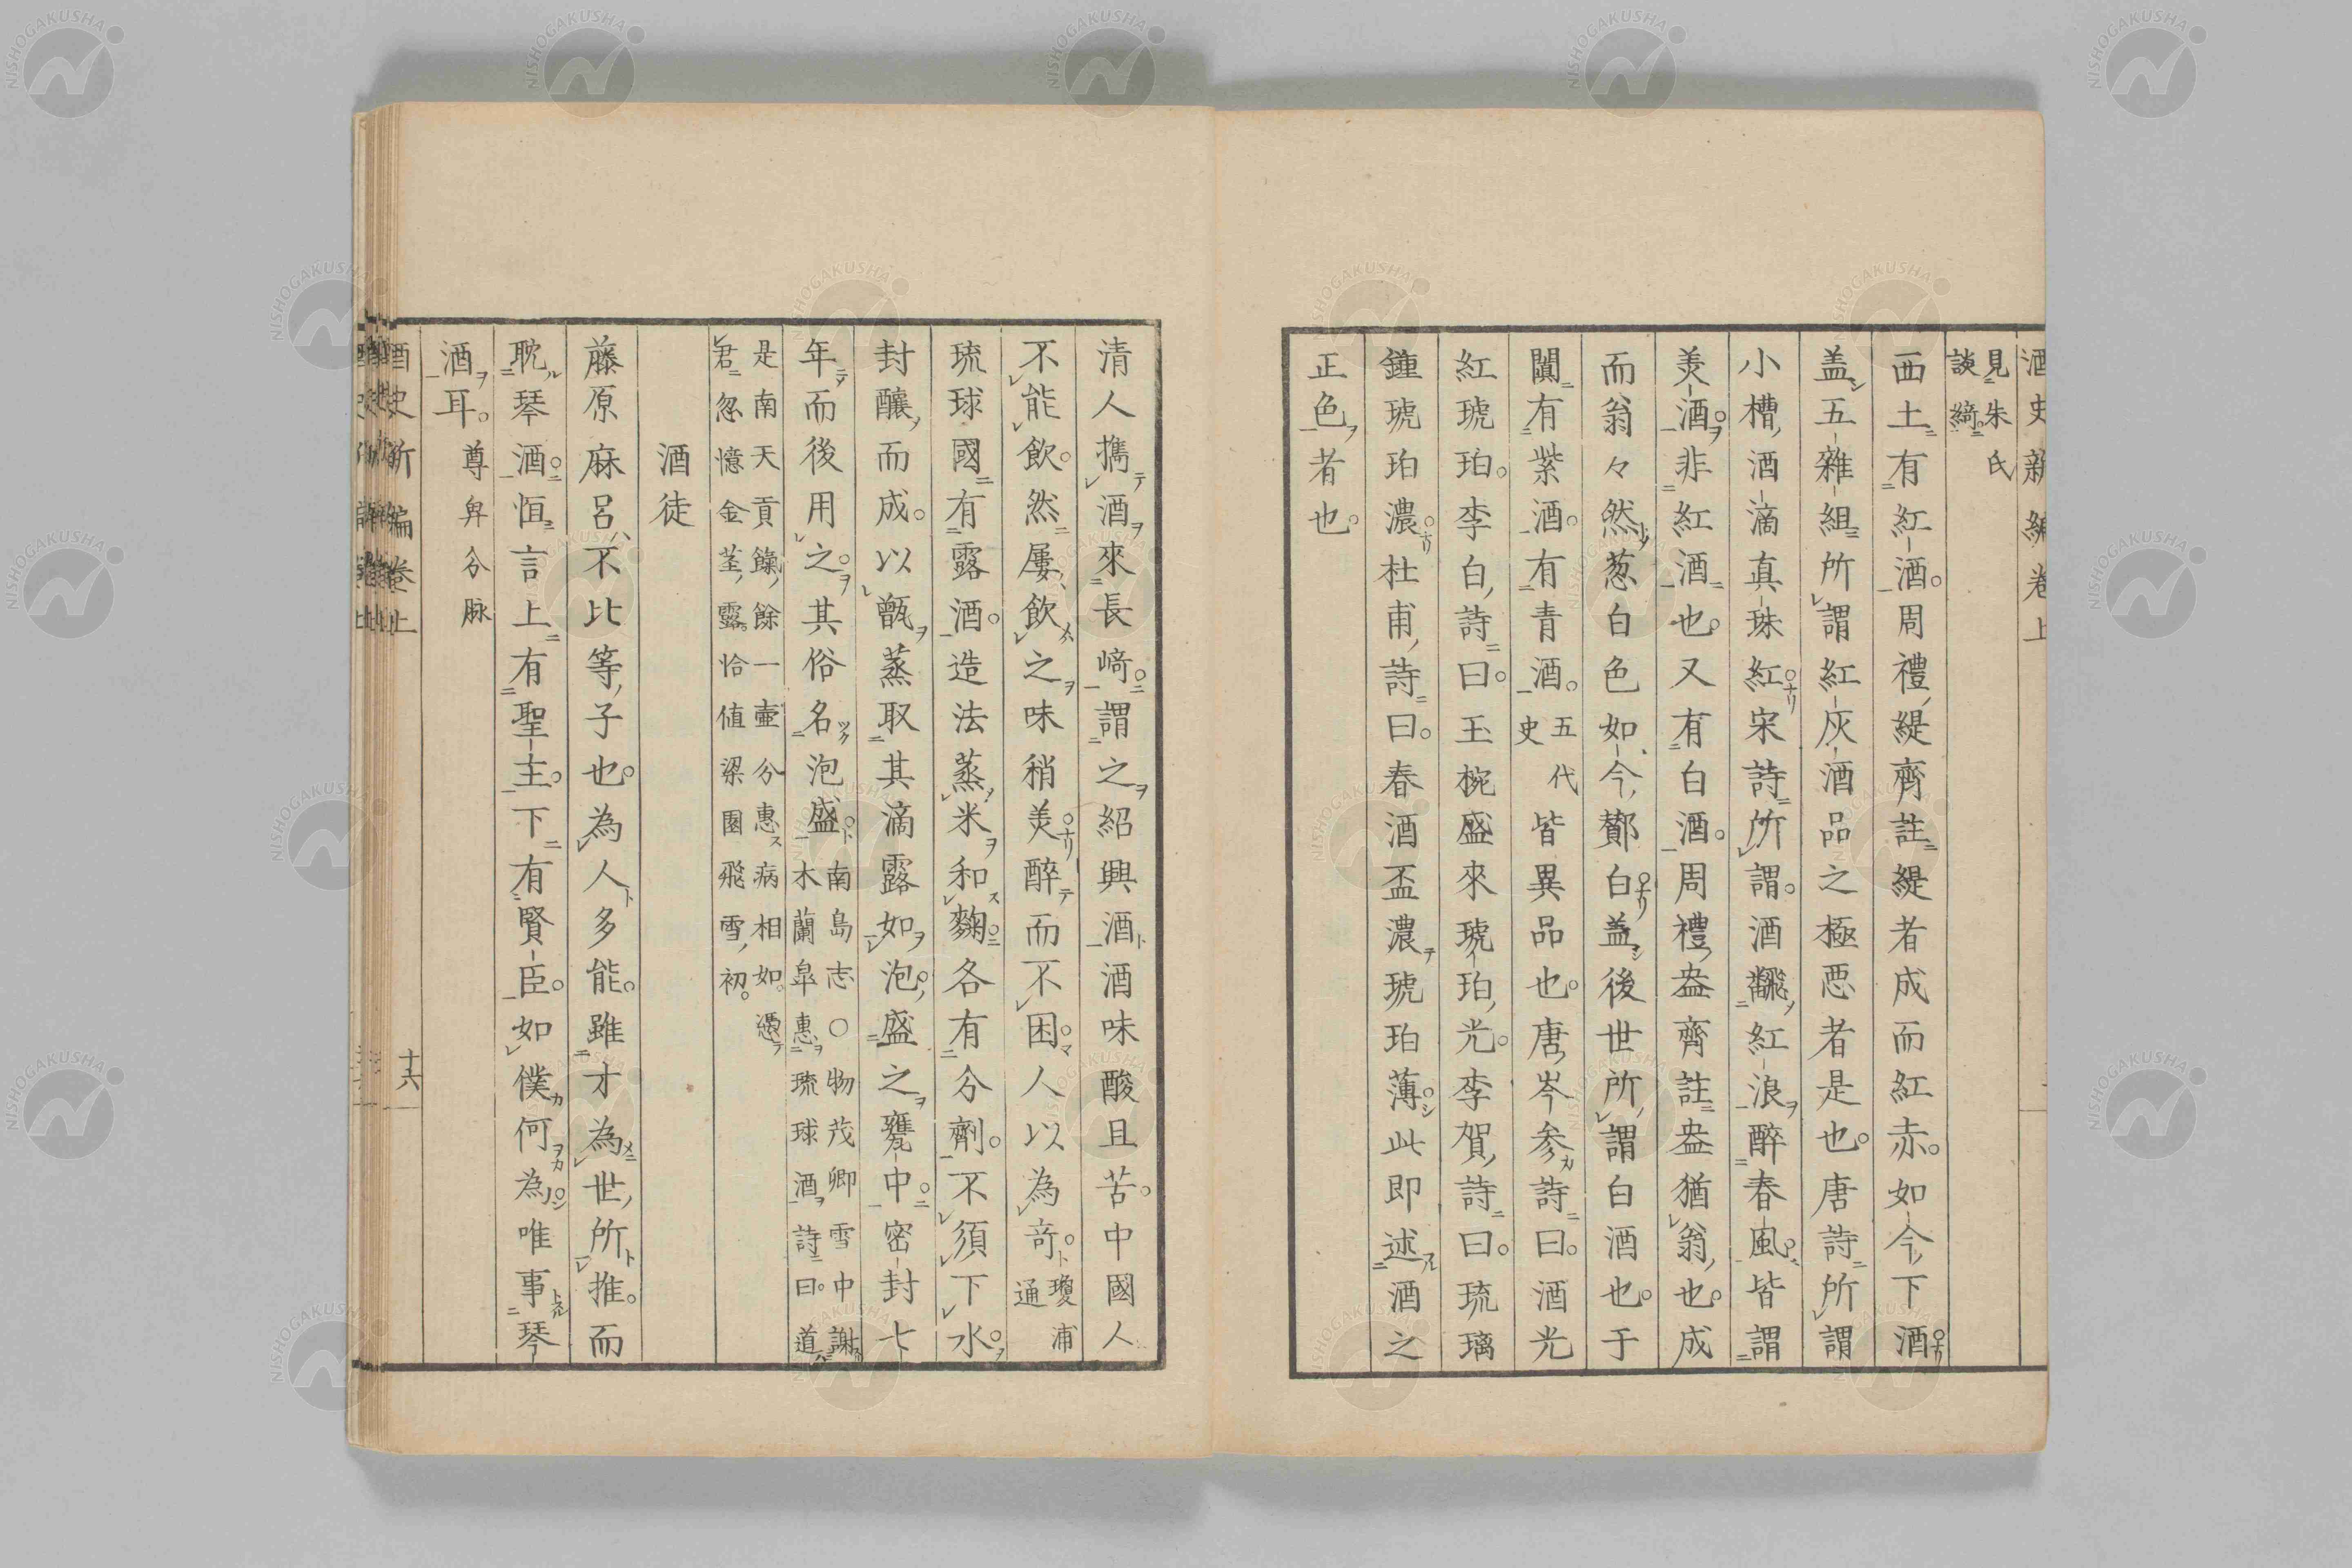 酒史新編卷上
見朱氏
談綺
西土有紅酒。周禮緹齊註緹者成而紅赤。如今下酒
盖五雜組所謂紅灰酒品之極悪者是也。唐詩所謂
小槽酒滴真珠紅宋詩所謂。酒飜紅浪醉春風皆謂
美酒非紅酒也。又有白酒。周禮盎齊註盎猶翁也。成
而翁々然葱白色如今酇白盖後世所謂白酒也。于
闐有紫酒。有青酒。五代
史
皆異品也。唐岑参詩曰。酒光
紅琥珀。李白詩曰。玉椀盛來琥珀光。李賀詩曰。琉璃
鍾琥珀濃杜甫詩曰。春酒盃濃琥珀薄此即述酒之
正色者也。
清人携酒來長崎謂之紹興酒酒味酸且苦。中國人
不能飲。然屡飲之味稍美醉而不困人以為竒。瓊浦
通
琉球國有露酒。造法蒸米和麴各有分劑。不須下水
封釀而成。以甑蒸取其滴露如泡盛之甕中密封七
年而後用之。其俗名泡盛南島志〇物茂卿雪中謝
木蘭皐惠琉球酒詩曰。道
是南天貢餘餘一壷分惠病相如。憑
君忽憶金莖露。恰値梁園飛雪初。
酒徒
藤原麻呂不比等子也。為人多能。雖才為世所推。而
耽琴酒恒言上有聖主。下有賢臣。如僕何為唯事琴
酒耳。尊卑分脉
酒史新編卷上
十六
NISHOGAKUSHA